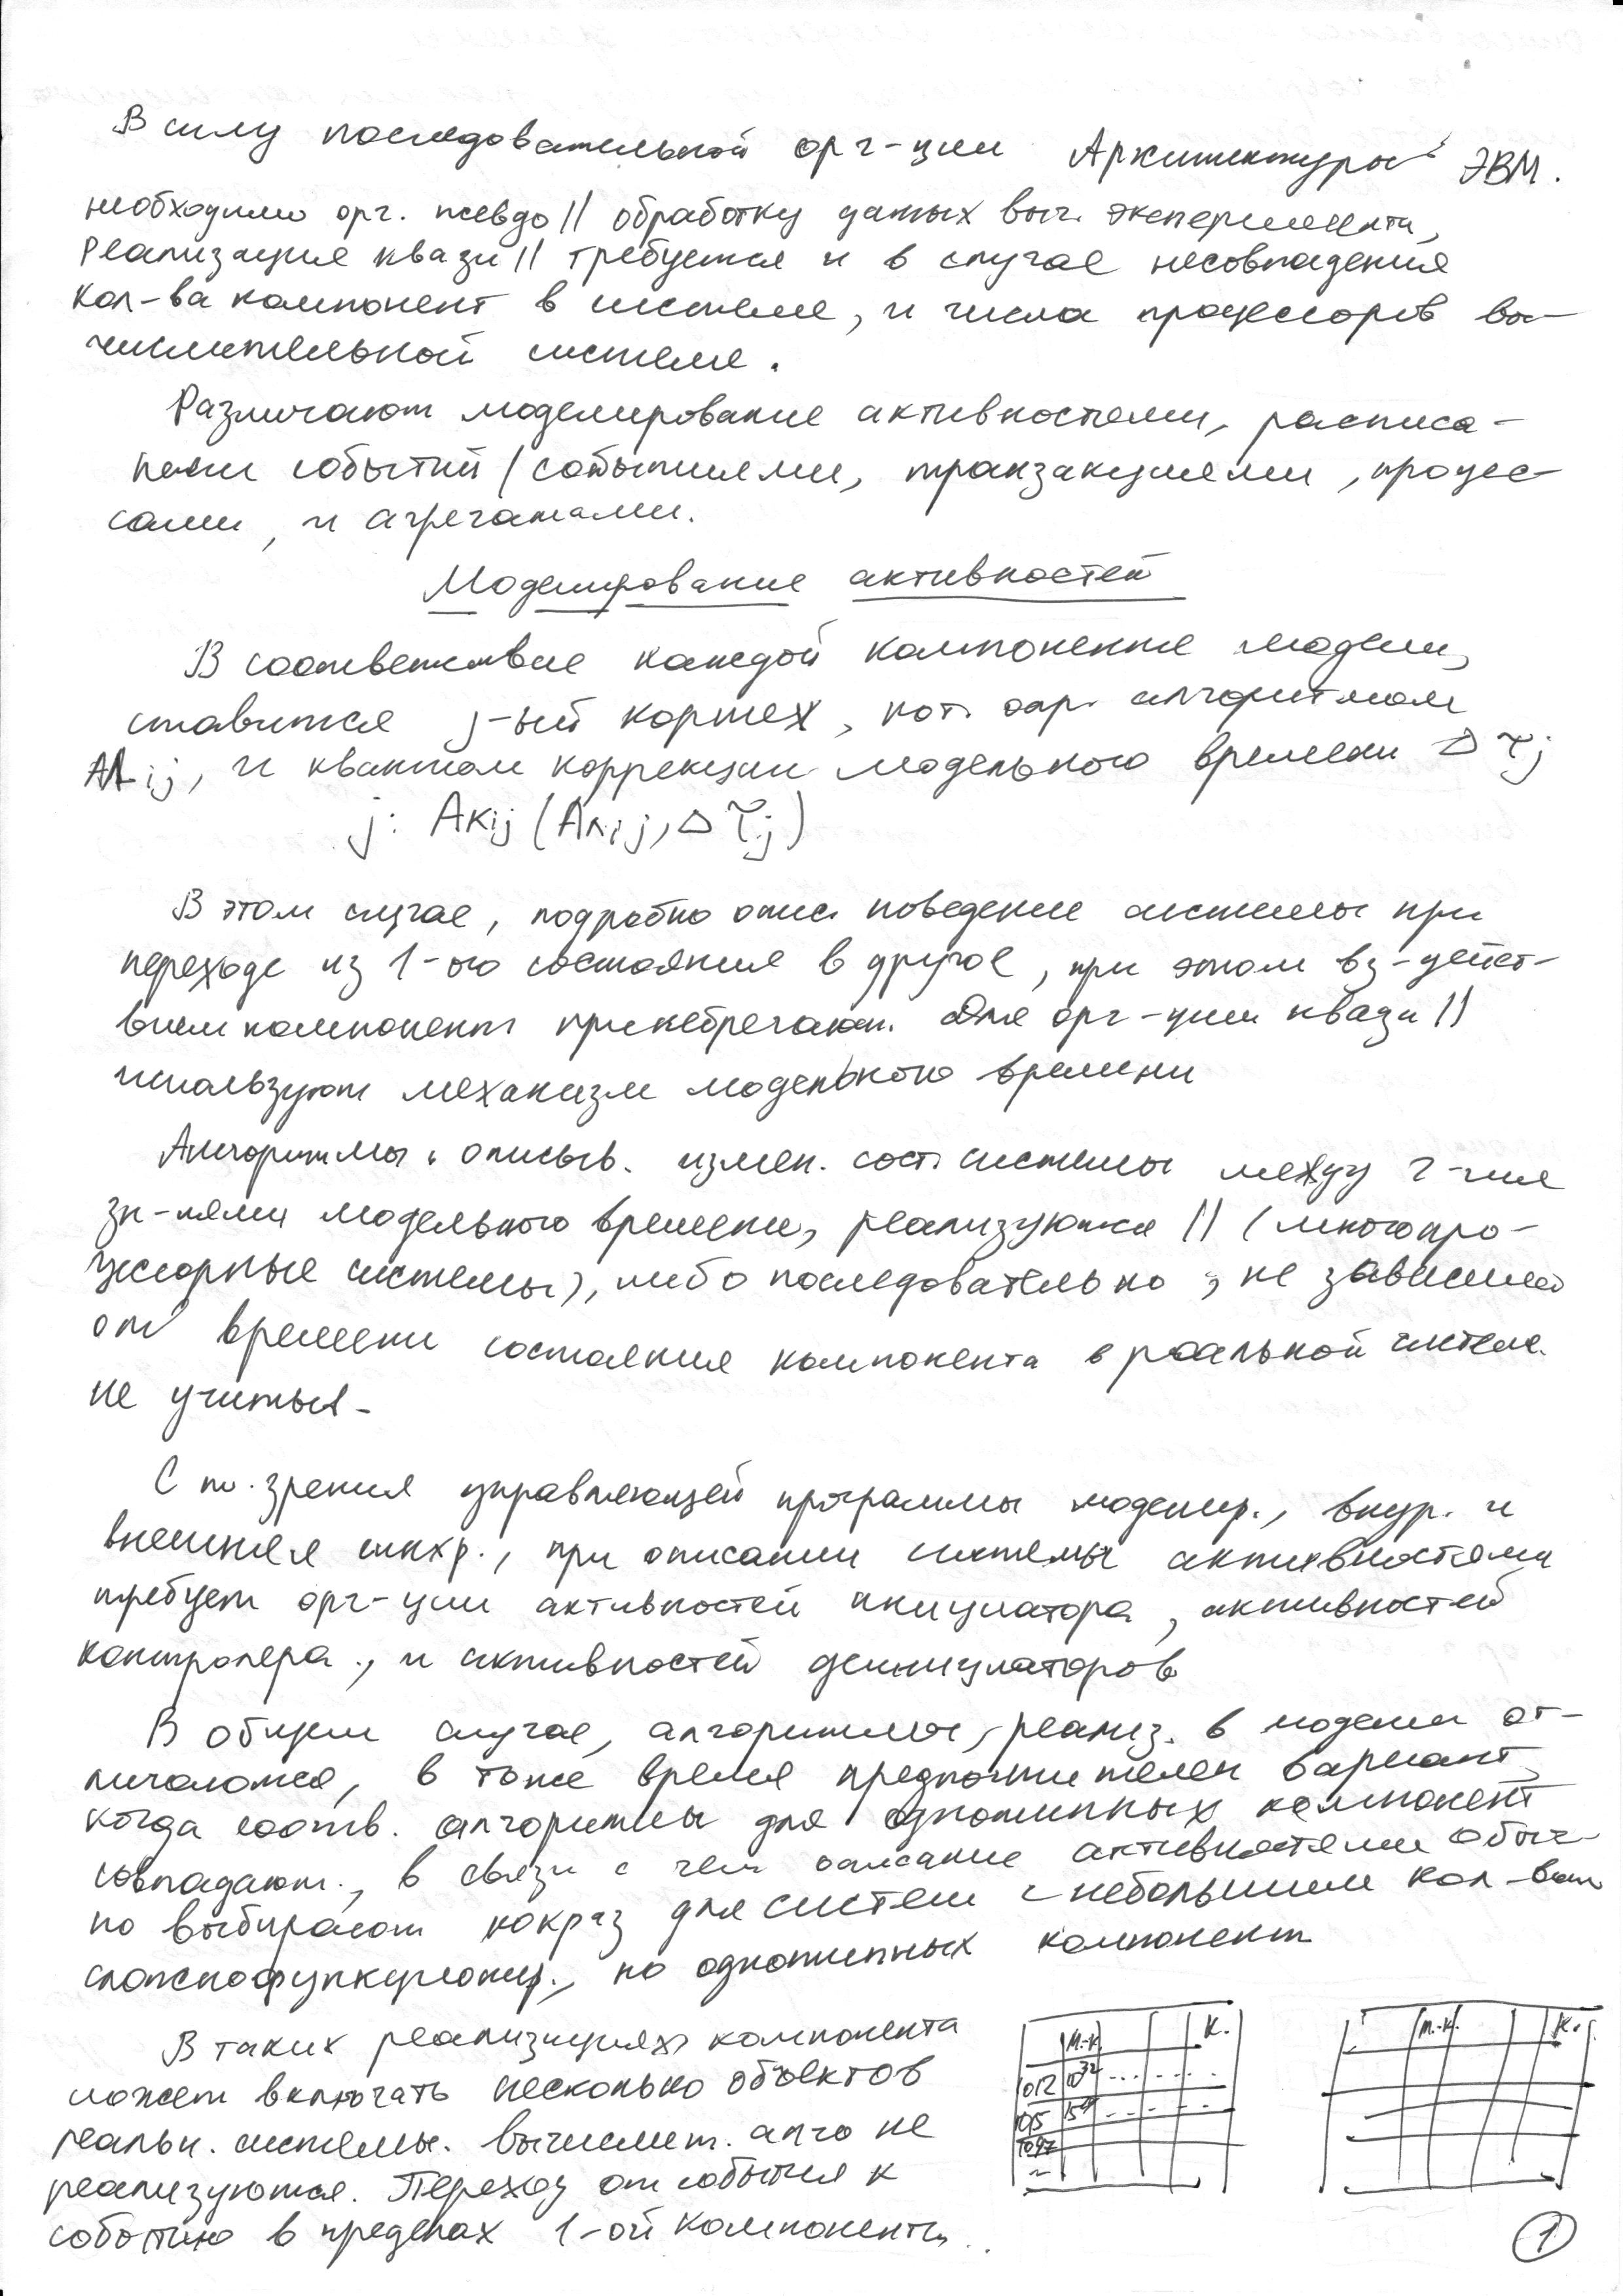 В силу последовательной орг-ции Архитектуры ЭВМ.
необходимо орг. псевдо || обработку данных выч. эксперимента,
Реализация квази || требуется и в случае несовпадения
кол-ва компонент в системе, и числа процессоров вы-
числительной системе.
Различают моделирование активностями, расписа-
нием событий / событиями, транзакциями, процес-
сами, и агрегатами.
Моделирование активностей
В соответствие каждой компоненте модели,
ставится j-ый кортеж, кот. опр. алгоритмом
Алij, и квантом коррекции модельного времени Δτj
j: Акij (Алij, Δτj)
В этом случае, подробно опис. поведение системы при
переходе из 1-ого состояния в другое, при этом вз-дейст-
вием компонент пренебрегают. Для орг-ции квази ||
используют механизм модельного времени
Алгоритмы, описыв. измен. сост. системы между 2-мя
зн-иями модельного времени, реализуются || (многопро-
цессорные системы), либо последовательно, не зависимо
от времени состояния компонента в реальной системе.
не учитыв-
С т. зрения управляющей программы моделир., внур. и
внешняя синхр., при описании системы активностями
требует орг-ции активностей инициатора, активностей
контролера, и активностей деинициаторов
В общем случае, алгоритмы, реализ. в модели от-
личаются, в тоже время предпочтителен вариант,
когда соотв. алгоритмы для однотипных компонент
совпадают., в связи с чем описание активностями обыч-
но выбирают какраз для систем с небольшим кол-вом
сложнофункционир., но однотипных компонент
В таких реализациях компонента
может включать несколько объектов
реальн. системы. вычислит. алго не
реализуются. Переход от события к
событию в пределах 1-ой компоненты..
м.-к. К.
012 032 ... ...
015 ... ...
м.-к. К.
1